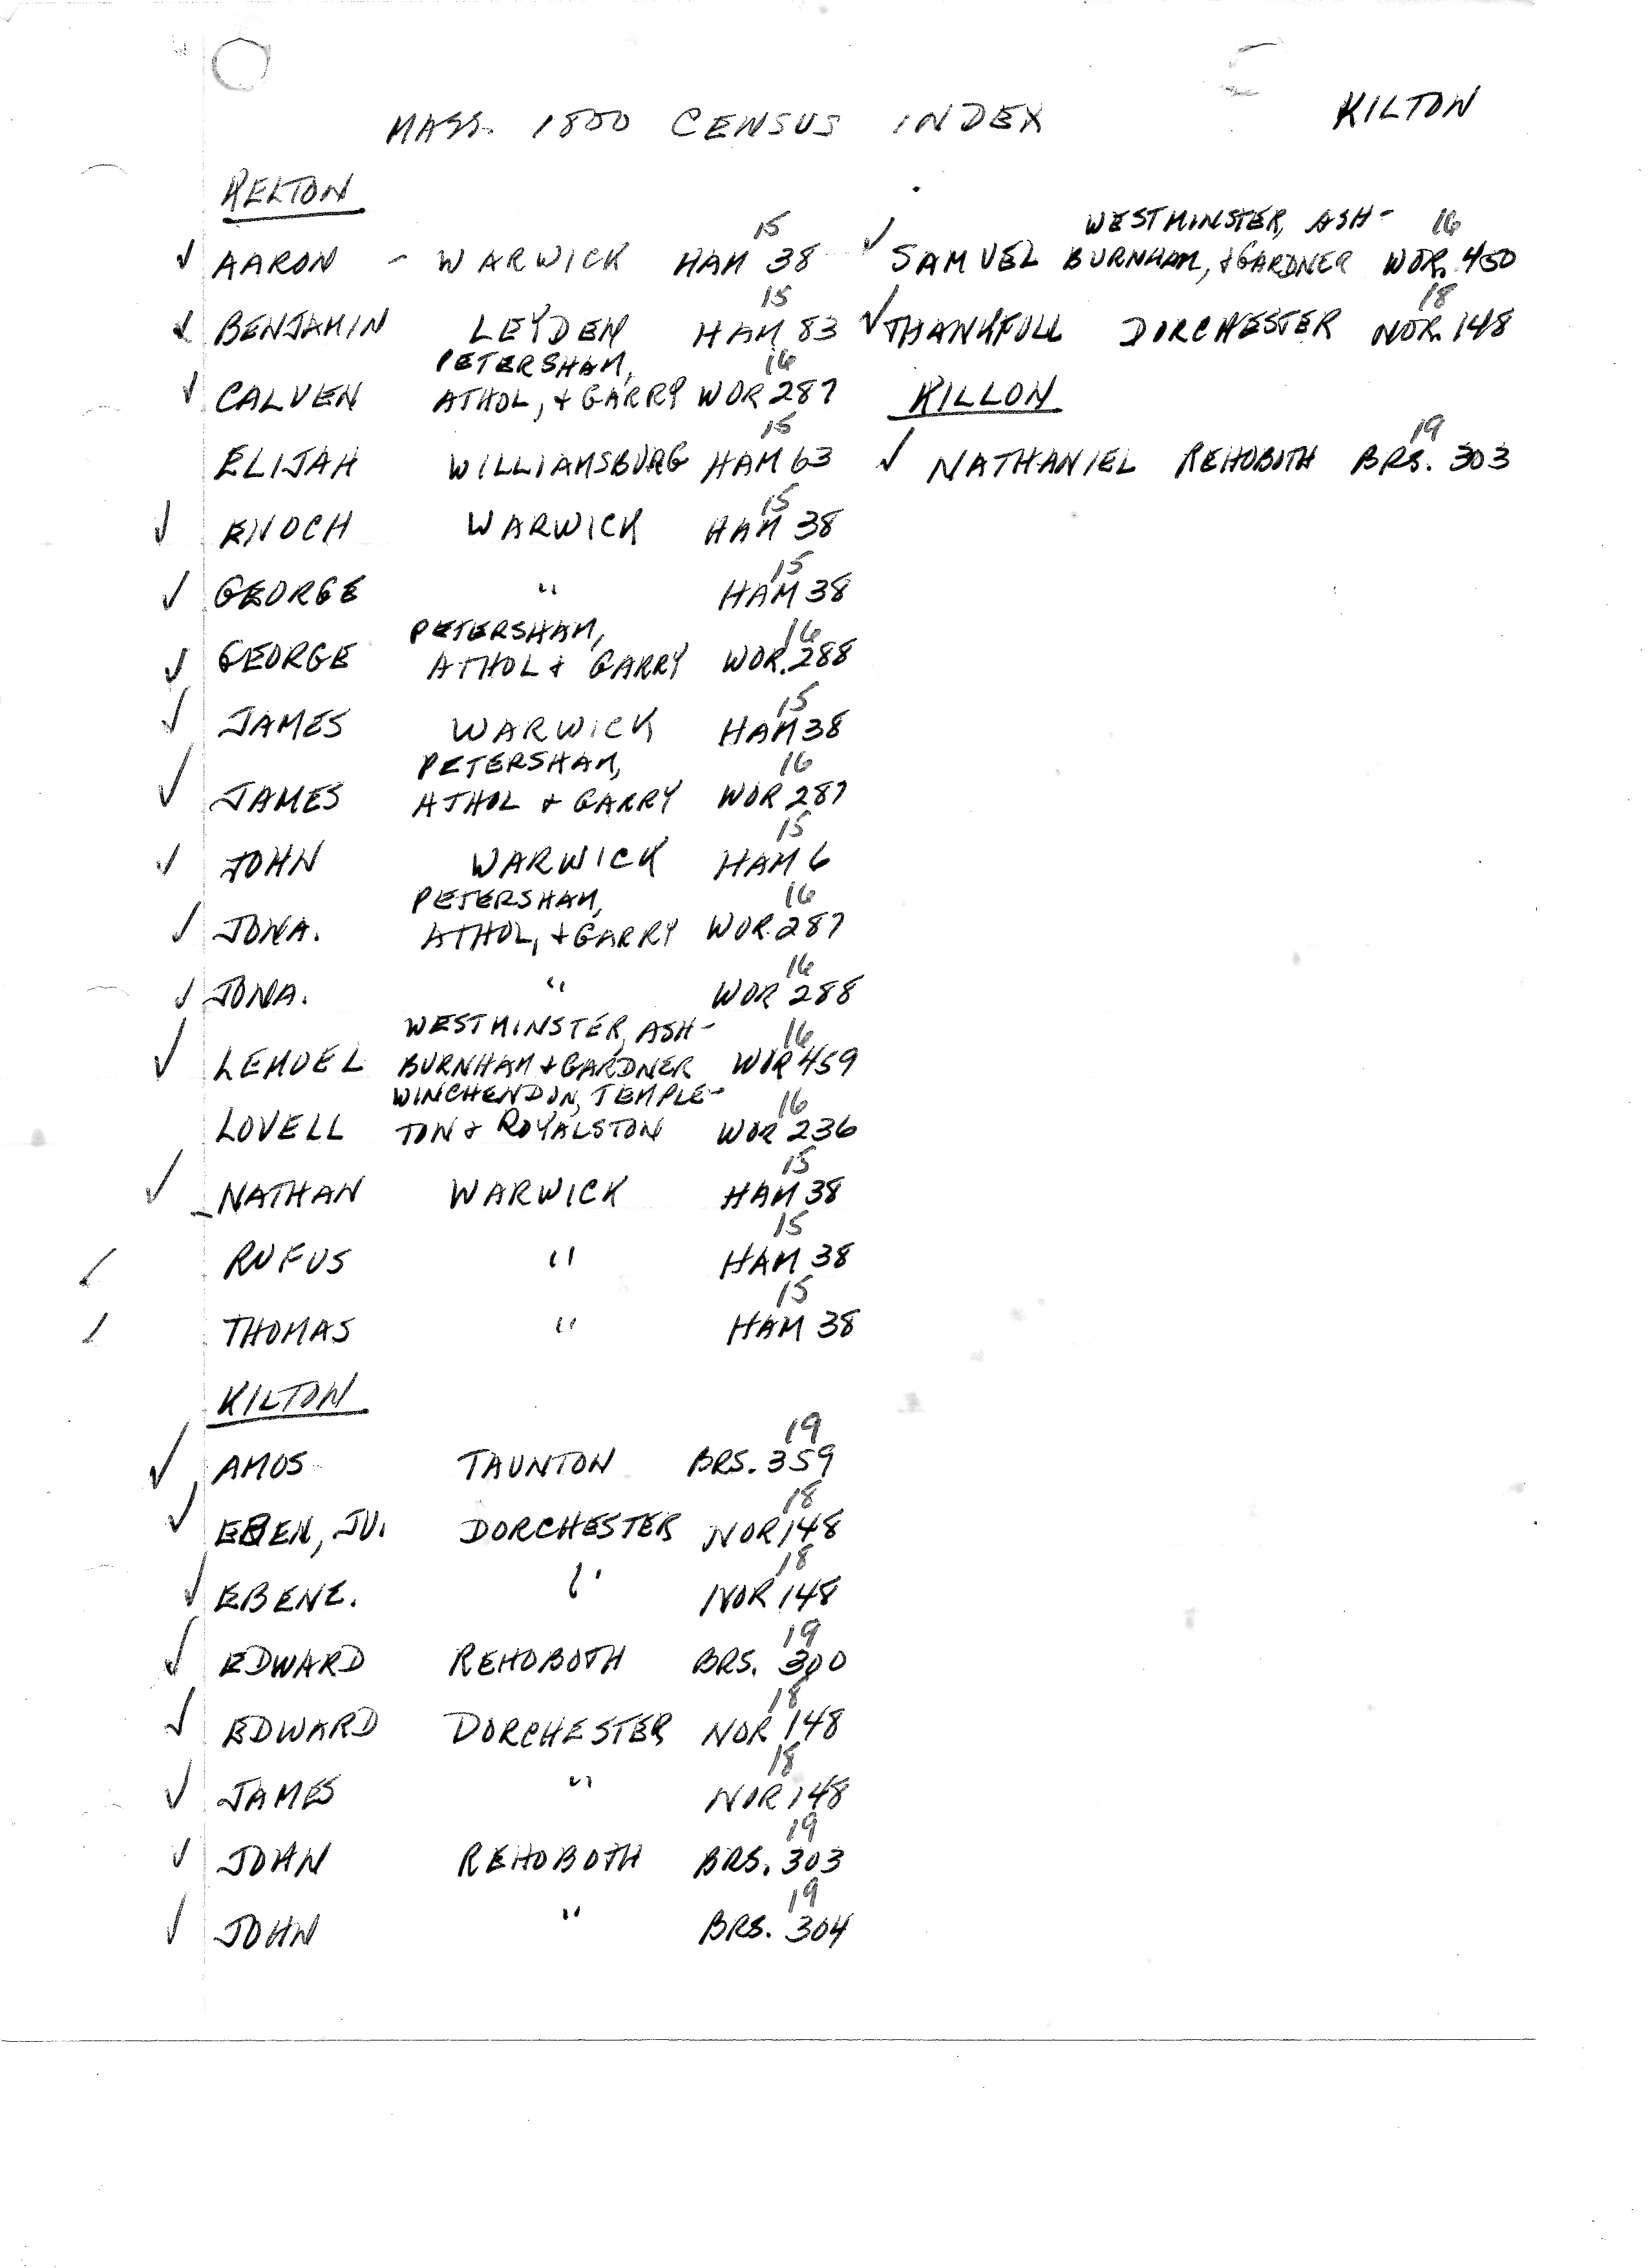 MASS. 1800 CENSUS INDEX KILTON
KELTON
15
✓ AARON - WARWICK HAM 38
15
✓ BENJAMIN LEYDEN HAM 83
PETERSHAM, 16
✓ CALVEN ATHOL, + GARRY WOR 287
15
ELIJAH WILLIAMSBURG HAM 63
15
✓ ENOCH WARWICK HAM 38
15
✓ GEORGE " HAM 38
PETERSHAM, 16
✓ GEORGE ATHOL + GARRY WOR. 288
15
✓ JAMES WARWICK HAM 38
PETERSHAM, 16
✓ JAMES ATHOL + GARRY WOR 287
15
✓ JOHN WARWICK HAM 6
PETERSHAM, 16
✓ JONA. ATHOL, + GARRY WOR. 287
16
✓ JONA. " WOR 288
WESTMINSTER, ASH- 16
✓ LEMUEL BURNHAM + GARDNER WOR 459
WINCHENDON, TEMPLE- 16
LOVELL TON + ROYALSTON WOR 236
15
✓ NATHAN WARWICK HAM 38
15
✓ RUFUS " HAM 38
15
✓ THOMAS " HAM 38
KILTON
19
✓ AMOS TAUNTON BRS. 359
18
✓ EBEN, JU. DORCHESTER NOR 148
18
✓ EBENE. " NOR 148
19
✓ EDWARD REHOBOTH BRS. 300
18
✓ EDWARD DORCHESTER NOR 148
18
✓ JAMES " NOR 148
19
✓ JOHN REHOBOTH BRS. 303
19
✓ JOHN " BRS. 304
WESTMINSTER, ASH- 16
✓ SAMUEL BURNHAM, + GARDNER WOR. 450
18
✓ THANKFULL DORCHESTER NOR. 148
KILLON
19
✓ NATHANIEL REHOBOTH BRS. 303